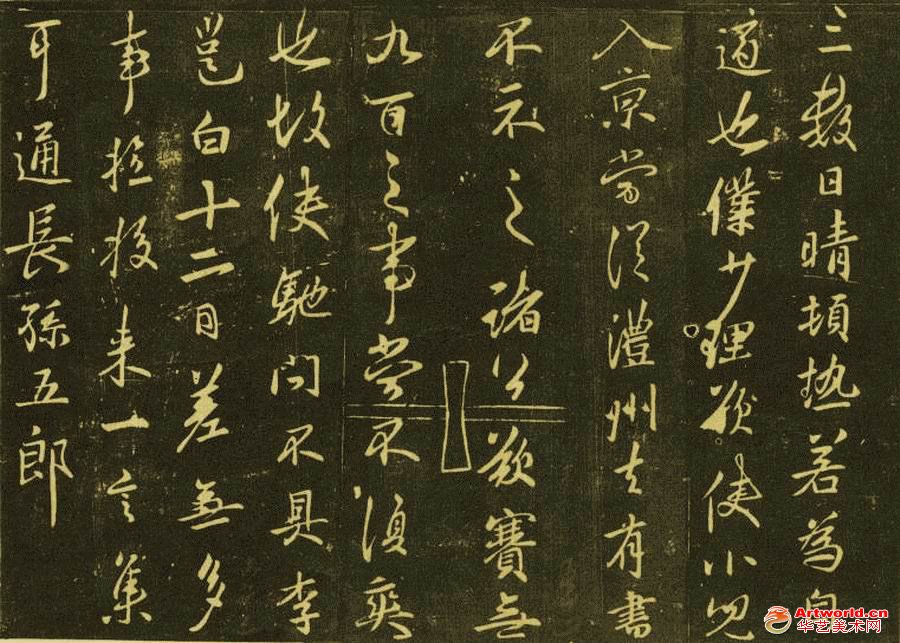 三數日晴頓热若為自
適也僕少理欲使小男
入京當從澧州去有書
不示之諸公欲賽無
九百之事當不須奕
也故使馳問不具李
邕白十二日差無多
事撿校来一言集
耳通長孫五郎
Artworld.cn
华艺美术网